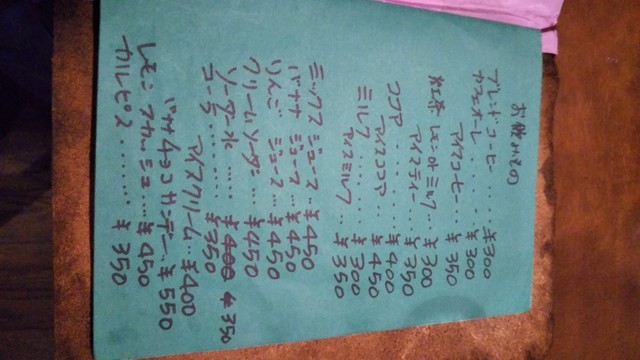 お飲みもの
ブレンドコーヒー......¥300
カフェオーレ......¥300
アイスコーヒー...¥350
紅茶 レモンorミルク..¥300
アイスティー...¥350
ココア......¥400
アイスココア...¥450
ミルク......¥300
アイスミルク..¥350
ミックスジュース..¥450
バナナ ジュース...¥450
りんご ジュース...¥450
クリームソーダ...¥450
ソーダー水....¥400 ¥350
コーラ......¥350
アイスクリーム..¥400
バナナチョコサンデー..¥550
レモンスカッシュ...¥450
カルピス.......¥350